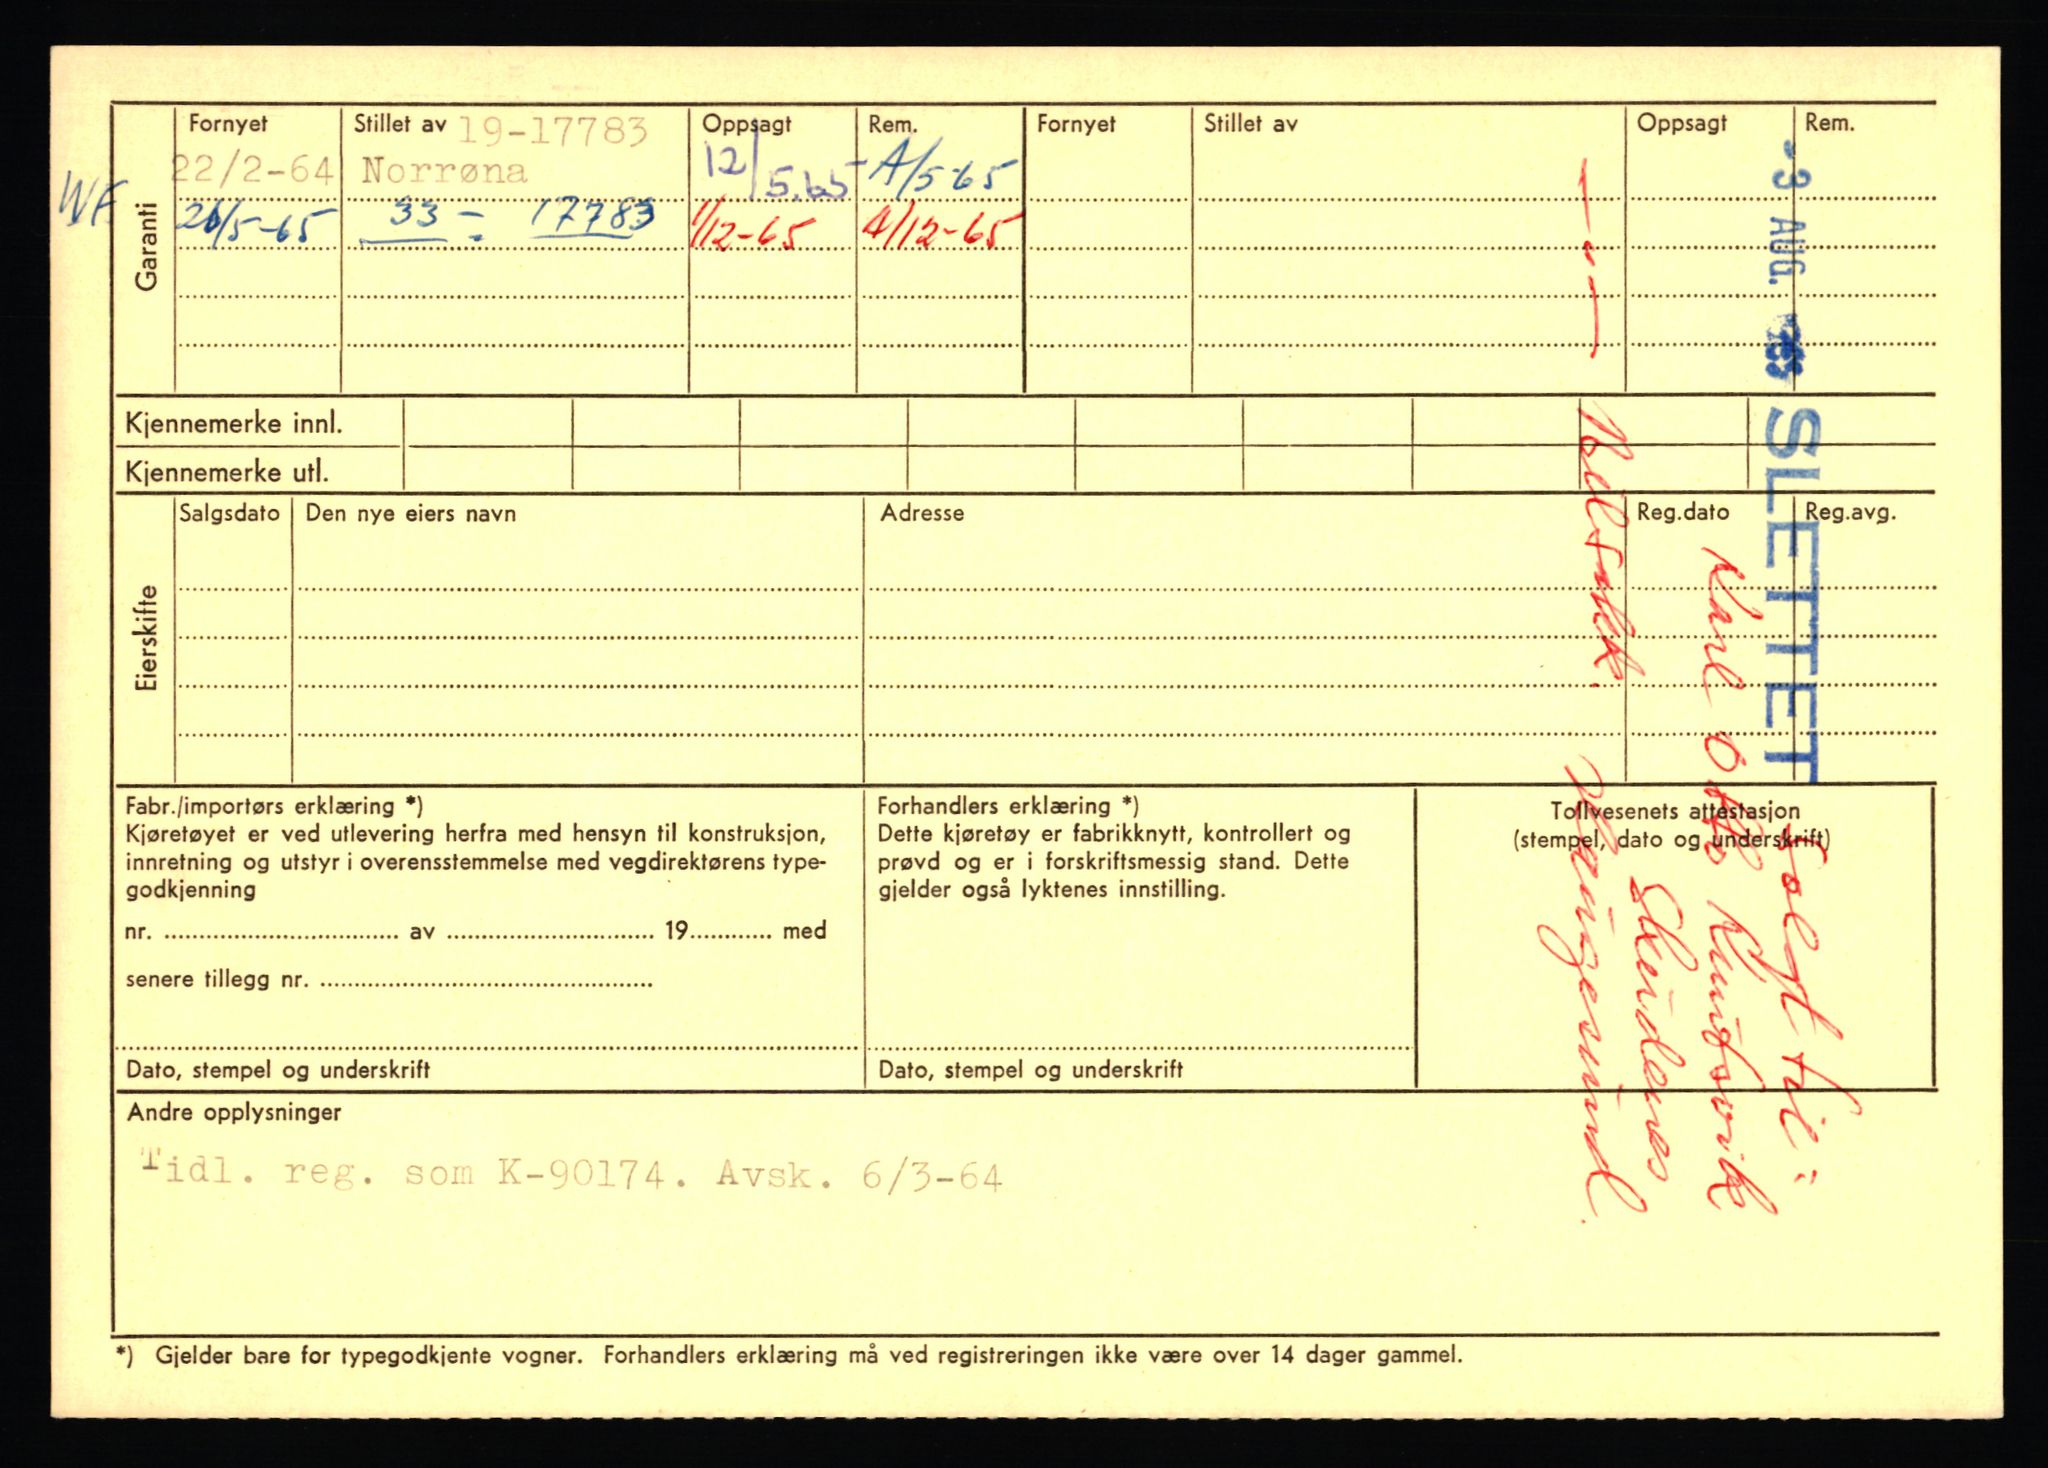 Garanti
Fornyet Stillet av 19-17783 Oppsagt Rem. Fornyet Stillet av Oppsagt Rem.
22/2-64 Norrøna 12/5.65 - A/5-65
WF. 26/5-65 33 - 17783 1/12-65 A/12-65
Kjennemerke innl.
Kjennemerke utl.
Eierskifte
Salgsdato Den nye eiers navn Adresse Reg.dato Reg.avg.
3 AUG.
SLETTET
Solgt til:
Karl Otto Knutsvik
Skeidenes
Haugesund.
Fabr./importørs erklæring *)
Kjøretøyet er ved utlevering herfra med hensyn til konstruksjon,
innretning og utstyr i overensstemmelse med vegdirektørens type-
godkjenning
nr. ........ av ........ 19........ med
senere tillegg nr. ........
Dato, stempel og underskrift
Forhandlers erklæring *)
Dette kjøretøy er fabrikknytt, kontrollert og
prøvd og er i forskriftsmessig stand. Dette
gjelder også lyktenes innstilling.
Dato, stempel og underskrift
Tollvesenets attestasjon
(stempel, dato og underskrift)
Andre opplysninger
Tidl. reg. som K-90174. Avsk. 6/3-64
*) Gjelder bare for typegodkjente vogner. Forhandlers erklæring må ved registreringen ikke være over 14 dager gammel.